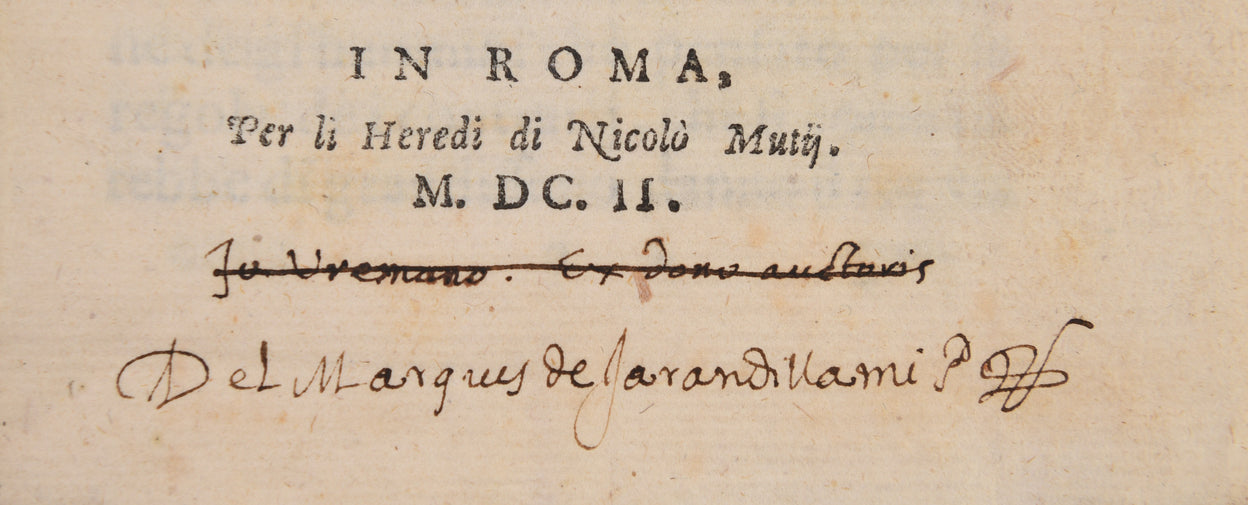 IN ROMA,
Per li Heredi di Nicolò Mutij.
M. DC. II.
Jo Uremano. Ex dono auctoris
Del Marques de Jarandilla mi P